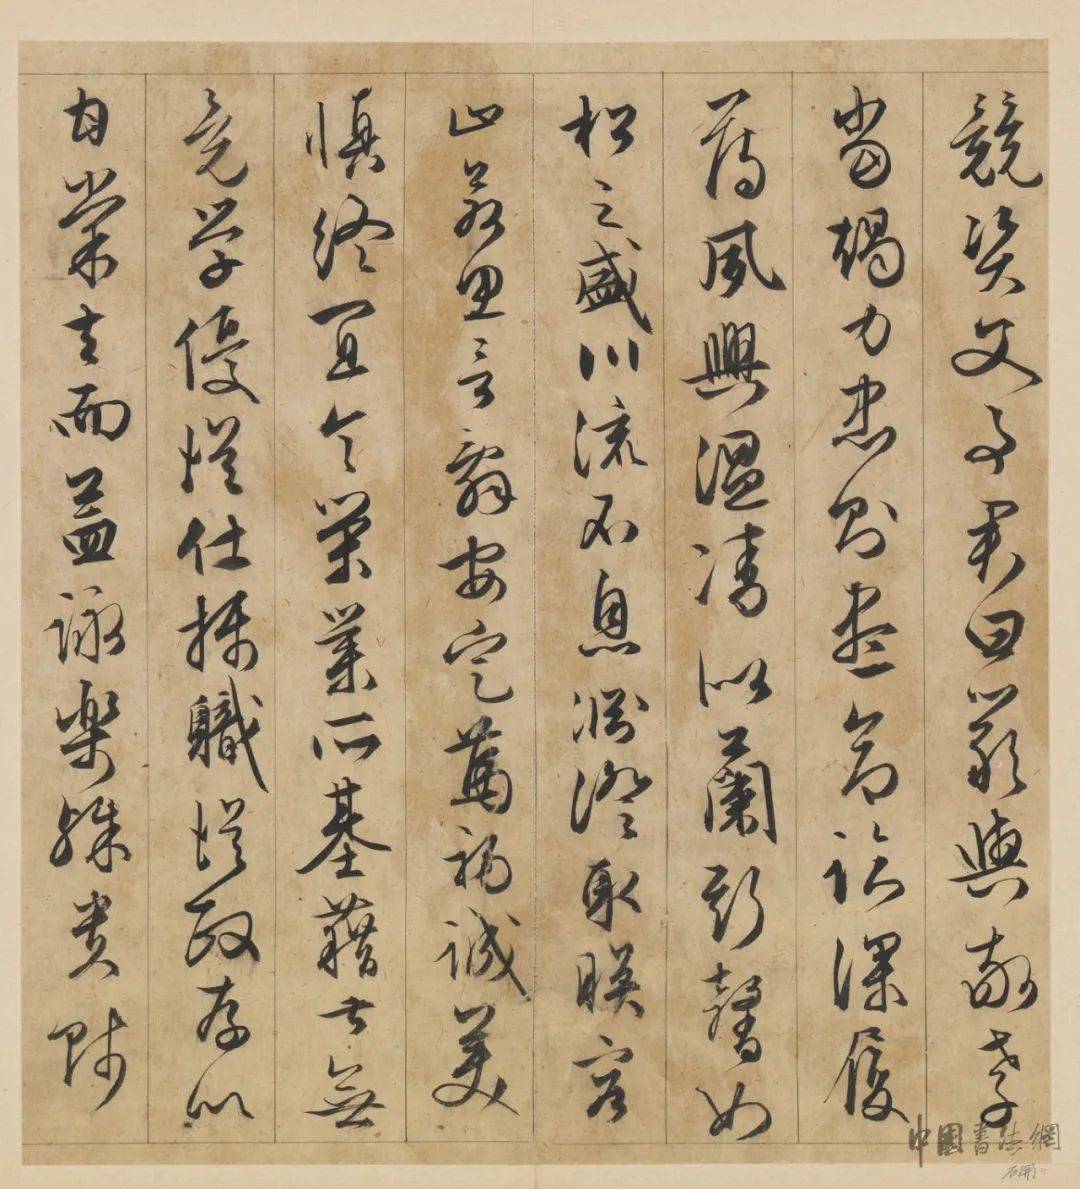 競資父事君曰嚴與敬孝
當竭力忠則盡命臨深履
薄夙興溫凊似蘭斯馨如
松之盛川流不息淵澄取暎容
止若思言辭安定篤初誠美
慎終宜令榮業所基藉甚無
竟學優登仕攝職從政存以
甘棠去而益詠樂殊貴賤
中國書法網
石開